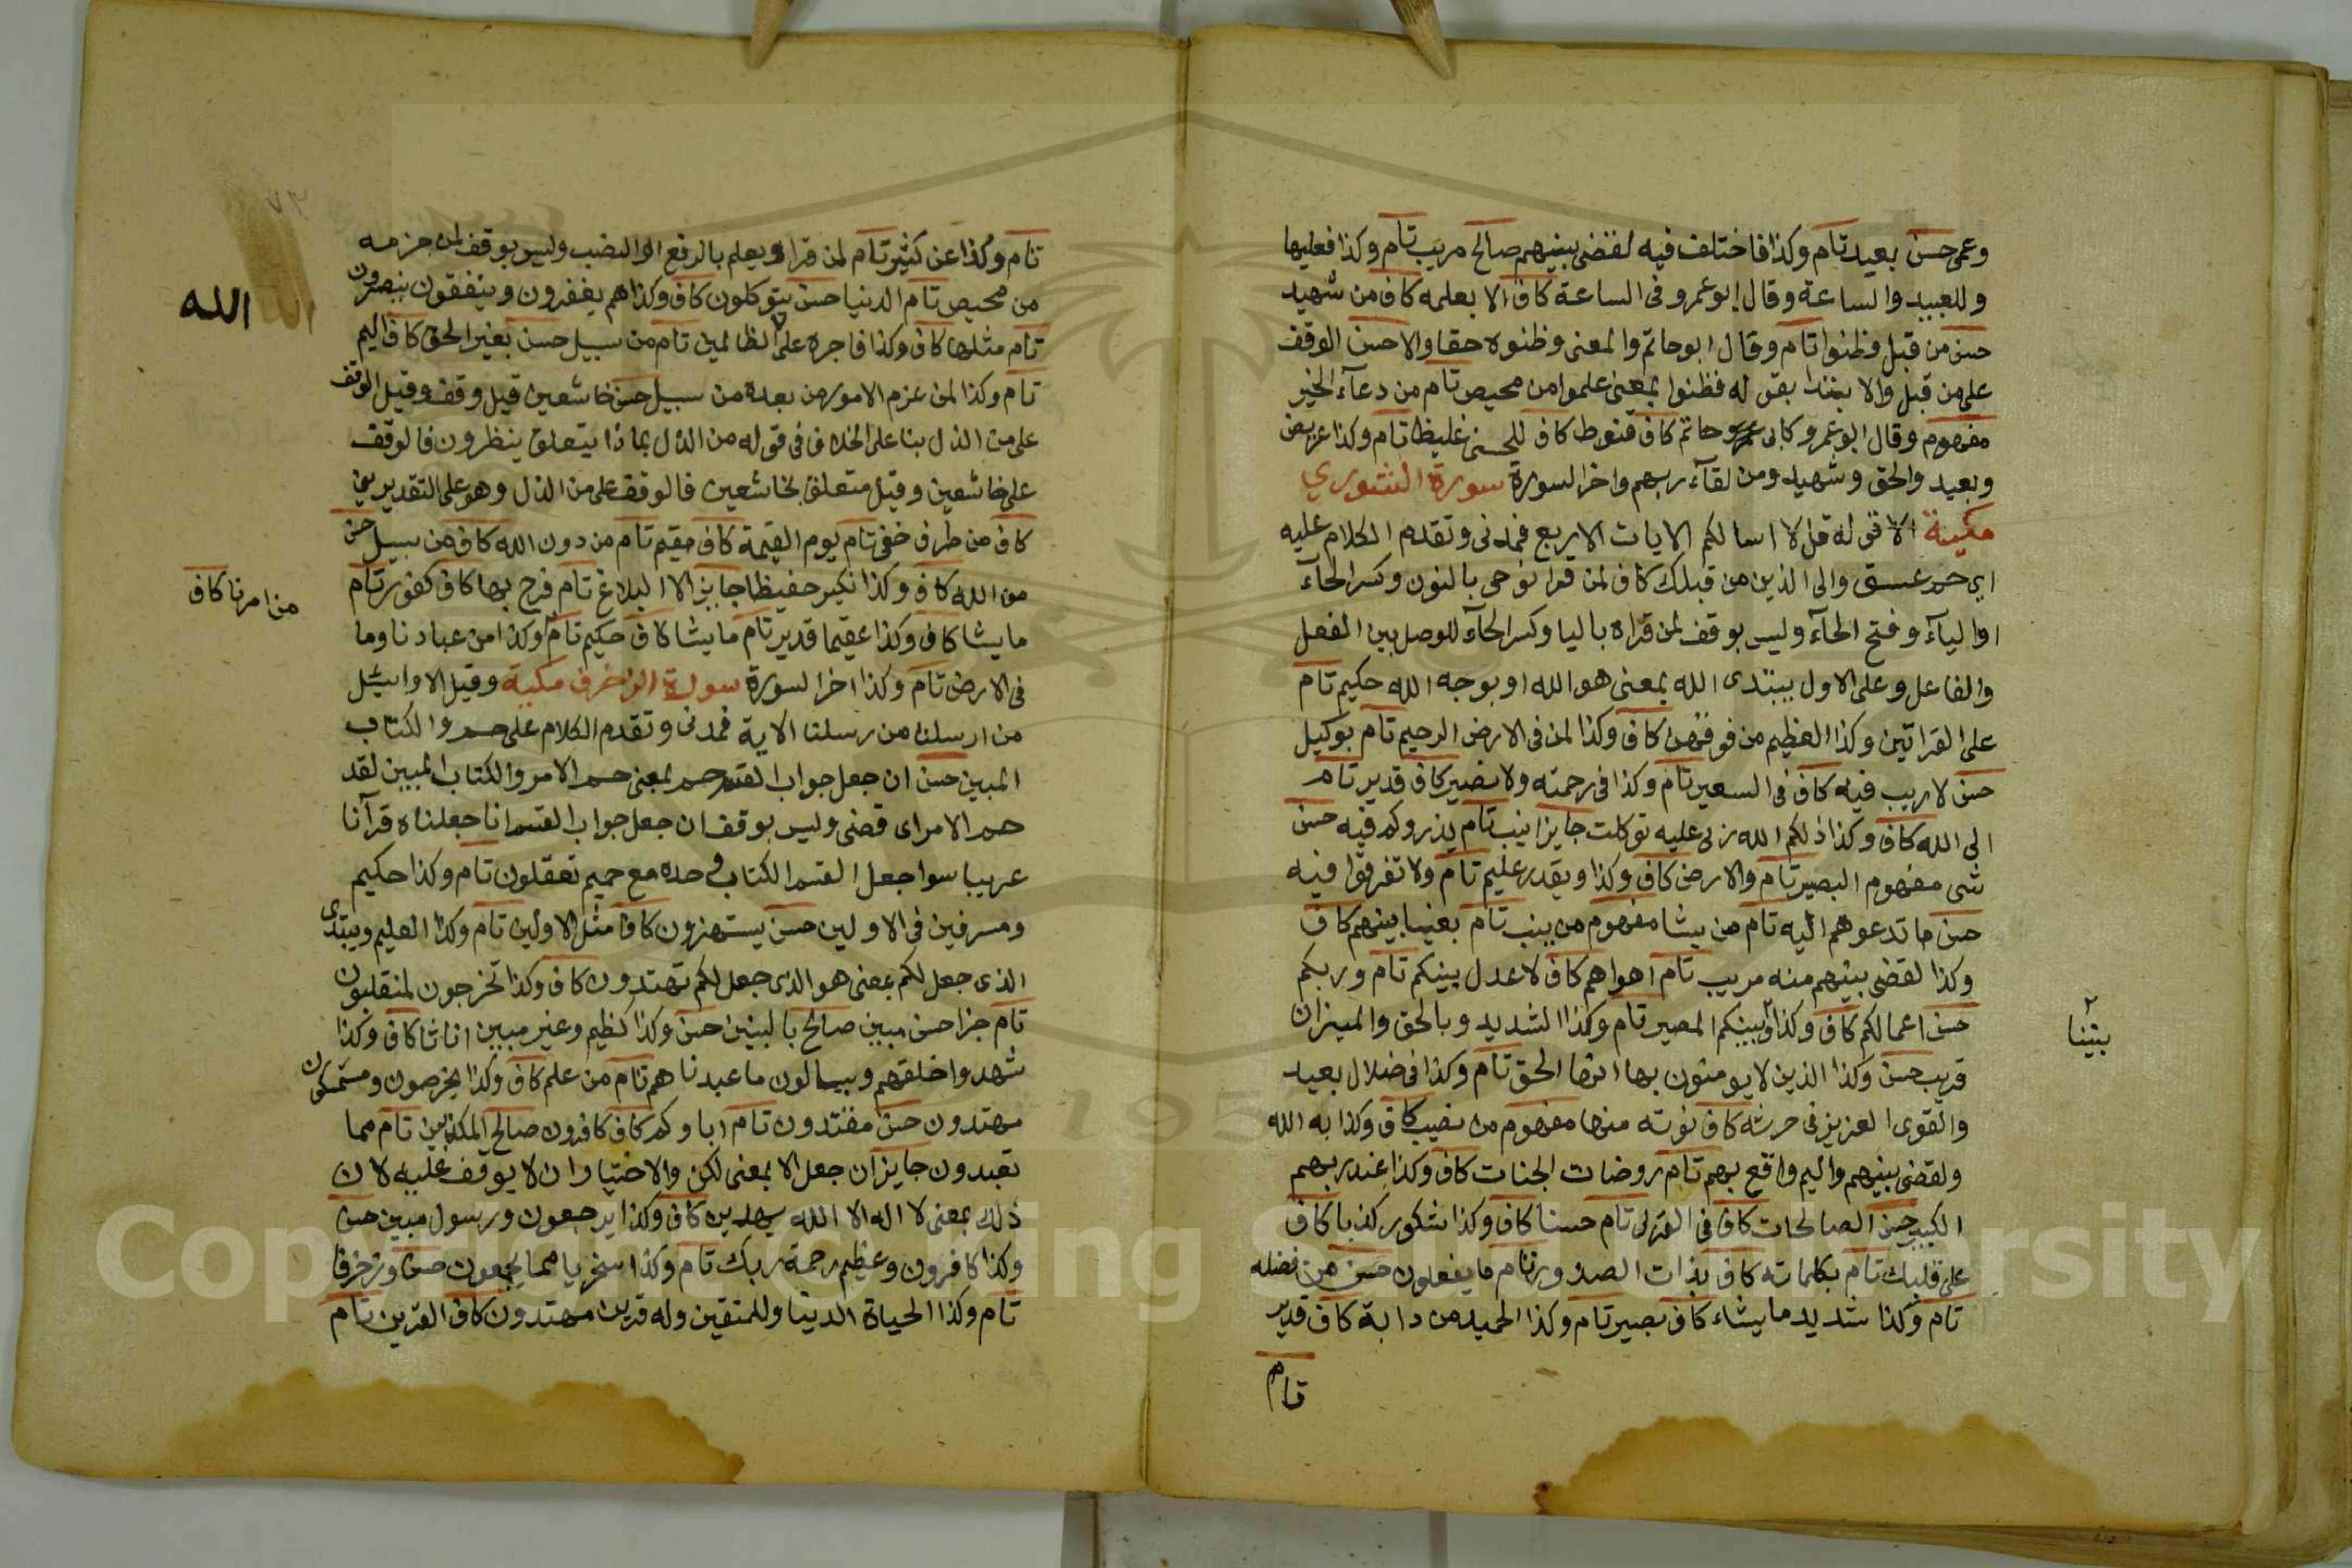 وعمى حسن بعيد تام وكذا فاختلف فيه لقضى بينهم صالح مريب تام وكذا فعليها
وللعبيد والساعة وقال ابو عمرو فى الساعة كاف الا بعلمه كاف من شهيد
حسن من قبل وظنوا تام وقال ابو حاتم والمعنى وظنوه حقا والاحسن الوقف
على من قبل والا بتدا بقوله فظنوا بمعنى علموا من محيص تام من دعآء الخير
مفهوم وقال ابو عمرو كابى حاتم كاف قنوط كاف للحسنى غليظ تام وكذا عريض
وبعيد والحق وشهيد ومن لقآء ربهم واخر السورة سورة الشوري
مكية الا قوله قل لا اسالكم الايات الاربع فمدنى وتقدم الكلام عليه
اي حم عسق والى الذين من قبلك كاف لمن قرا نوحى بالنون وكسر الحآء
اوالياء وفتح الحآء وليس بوقف لمن قراه باليا وكسر الحآء للوصل بين الفعل
والفاعل وعلى الاول يبتدى الله بمعنى هو الله او يوحه الله حكيم تام
على القراتين وكذا العظيم من فوقهن كاف وكذا لمن فى الارض الرحيم تام بوكيل
حسن لا ريب فيه كاف فى السعير تام وكذا فى رحمته ولا نصير كاف قدير تام
الى الله كاف وكذا ذلكم الله ربى عليه توكلت جايز انيب تام يذروكم فيه حسن
شى مفهوم البصير تام والارض كاف وكذا ويقدر عليم تام ولا تفرقوا فيه
حسن ما تدعوهم اليه تام من يشا مفهوم من ينيب تام بغيا بينهم كاف
وكذا لقضى بينهم منه مريب تام اهواهم كاف لاعدل بينكم تام وربكم
حسن اعمالكم كاف وكذا وبينكم المصير تام وكذا الشديد وبالحق والميزان
قريب حسن وكذا الذين لا يومنون بها انها الحق تام وكذا فى ضلال بعيد
والقوى العزيز فى حرثه كاف نوته منها مفهوم من نصيب كاف وكذا به الله
ولقضى بينهم واليم واقع بهم تام روضات الجنات كاف وكذا عند ربهم
الكبير حسن الصالحات كاف فى القربى تام حسنا كاف وكذا شكور كذبا كاف
على قلبك تام بكلماته كاف بذات الصدور تام ما يفعلون حسن من فضله
تام وكذا شديد ما يشاء كاف بصير تام وكذا الحميد من دابة كاف قدير
تام
بيننا
تام وكذا عن كثير تام لمن قرا ويعلم بالرفع او النصب وليس بوقف لمن جزمه
من محيص تام الدنيا حسن يتوكلون كاف وكذا هم يغفرون وينفقون ينتصرون
تام مثلها كاف وكذا فاجره على الظالمين تام من سبيل حسن بغير الحق كاف اليم
تام وكذا لمن عزم الامور من بعده من سبيل حسن خاشعين قيل وقف وقيل الوقف
على من الذل بنا على الخلاف فى قوله من الذل بماذا يتعلق ينظرون فالوقف
على خاشعين وقيل متعلق بخاشعين فالوقف على من الذل وهو على التقديرين
كاف من طرف خفى تام يوم القيمة كاف مقيم تام من دون الله كاف من سبيل حسن
من الله كاف وكذا نكير حفيظا جايز الا البلاغ تام فرح بها كاف كفور تام
ما يشا كاف وكذا عقيما قدير تام ما يشا كاف حكيم تام وكذا من عبادنا وما
فى الارض تام وكذا اخر السورة سورة الزخرف مكية وقيل الا واسئل
من ارسلنا من رسلنا الاية فمدنى وتقدم الكلام على حم والكتاب
المبين حسن ان جعل جواب القسم حم بمعنى حم الامر والكتاب المبين لقد
حم الامر اى قضى وليس بوقف ان جعل جواب القسم انا جعلناه قرآنا
عربيا سوا جعل القسم الكتاب وحده مع حميم تعقلون تام وكذا حكيم
ومسرفين فى الاولين حسن يستهزون كاف مثل الاولين تام وكذا العليم ويبتدى
الذى جعل لكم بمعنى هو الذى جعل لكم تهتدون كاف وكذا تخرجون لمنقلبون
تام جزا حسن مبين صالح بالبنين حسن وكذا كظيم وغير مبين اناثا كاف وكذا
شهدوا خلقهم ويسالون ما عبدناهم تام من علم كاف وكذا يخرصون ومستمسكون
مهتدون حسن مقتدون تام اباوكم كاف كافرون صالح المكذبين تام مما
تعبدون جايز ان جعل الا بمعنى لكن والاختيار ان لا يوقف عليه لان
ذلك بمعنى لا اله الا الله سيهدين كاف وكذا يرجعون ورسول مبين حسن
وكذا كافرون وعظيم رحمة ربك تام وكذا سخريا مما يجمعون حسن وزخرفا
تام وكذا الحياة الدنيا وللمتقين وله قرين مهتدون كاف القرين تام
الله
من امرنا كاف
Copyright © King Saud University